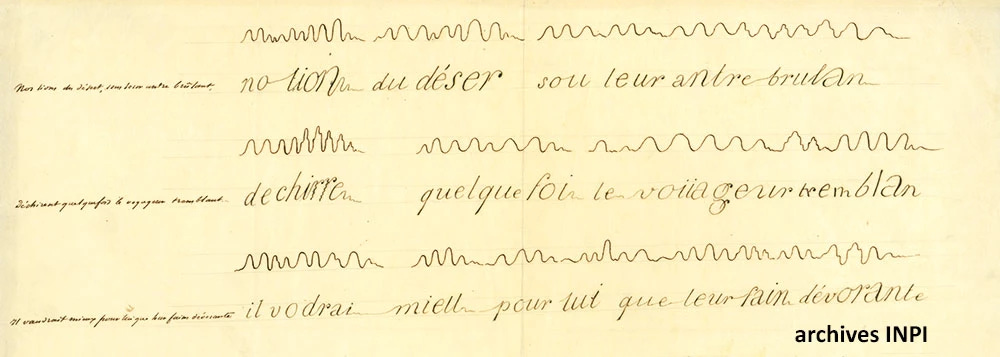 Nos lions du désert, sous leur antre brûlant,
no lion du déser sou leur antre brulan
Déchirent quelquefois le voyageur tremblant
dechirre quelque foi le voïiageur tremblan
Il vaudrait mieux pour lui que leur faim dévorante
il vodrai miell pour lui que leur fain dévorante
archives INPI